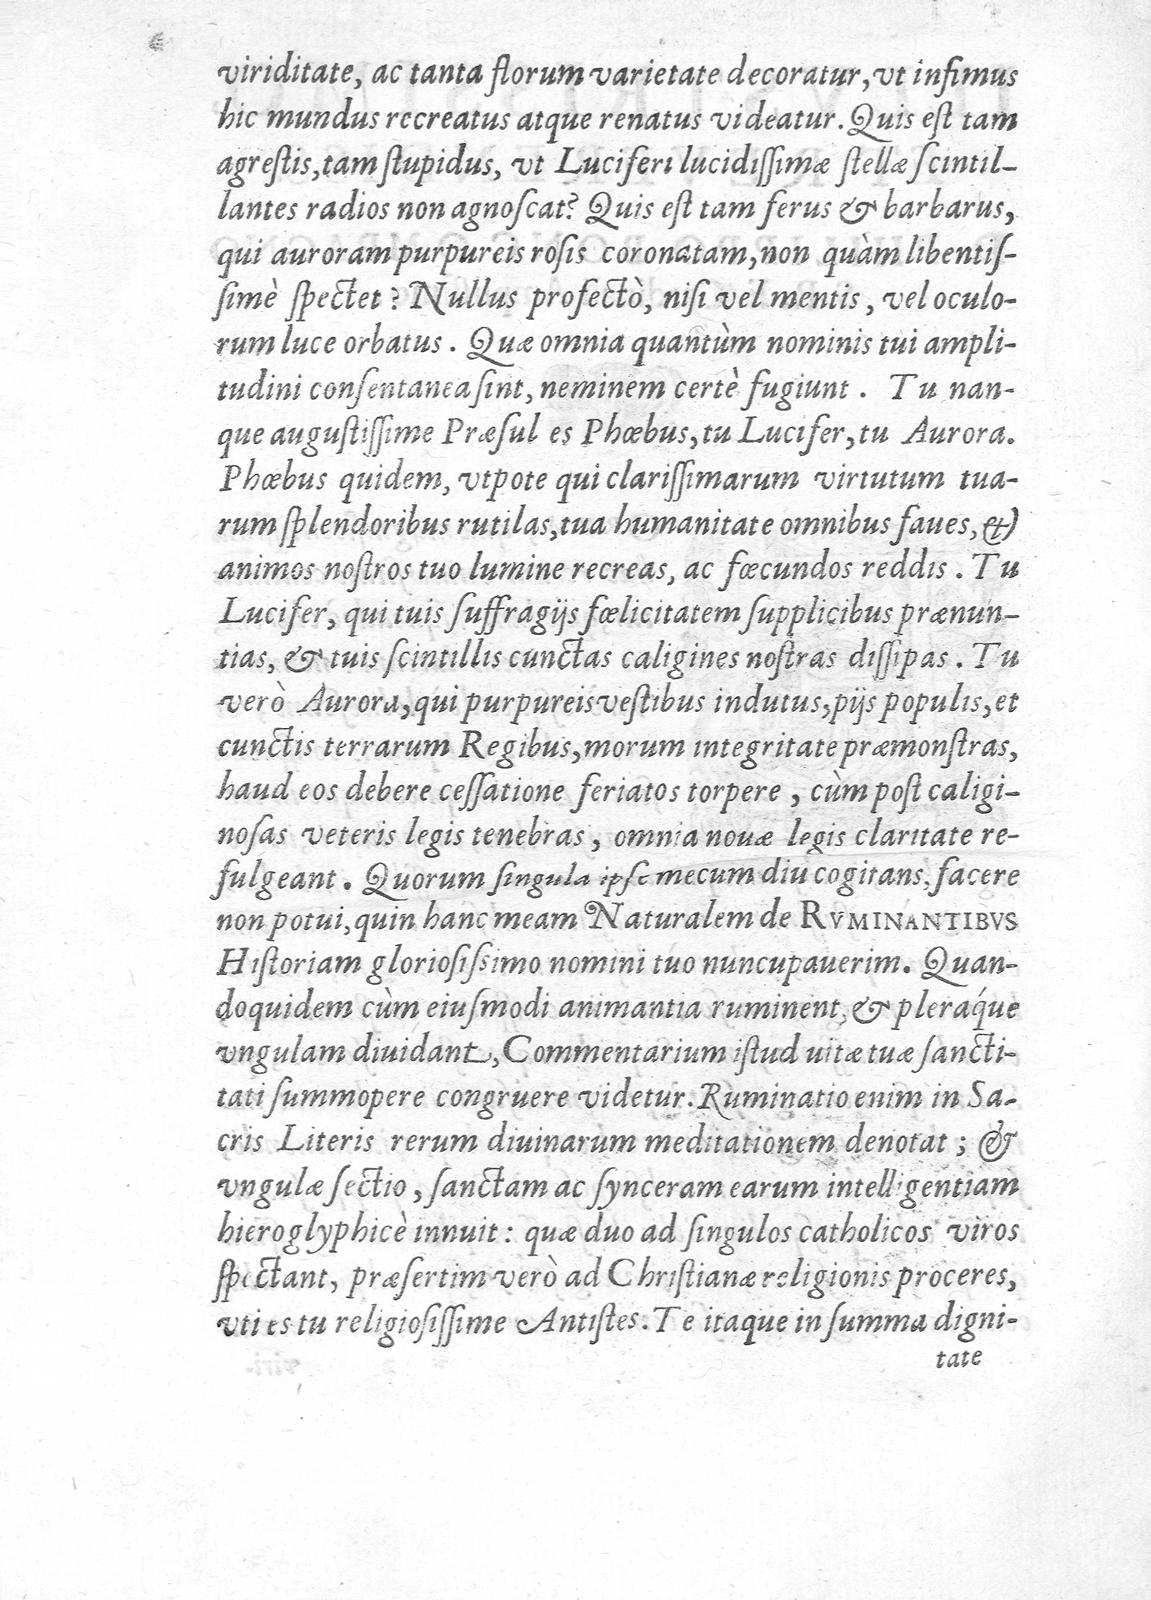 viriditate, ac tanta florum varietate decoratur, vt infimus
hic mundus recreatus atque renatus videatur. Quis est tam
agrestis, tam stupidus, vt Luciferi lucidissimæ stellæ scintil-
lantes radios non agnoscat? Quis est tam ferus & barbarus,
qui auroram purpureis rosis coronatam, non quàm libentis-
simè spectet? Nullus profectò, nisi vel mentis, vel oculo-
rum luce orbatus. Quæ omnia quantùm nominis tui ampli-
tudini consentanea sint, neminem certè fugiunt. Tu nan-
que augustissime Præsul es Phœbus, tu Lucifer, tu Aurora.
Phœbus quidem, vtpote qui clarissimarum virtutum tua-
rum splendoribus rutilas, tua humanitate omnibus faues, &
animos nostros tuo lumine recreas, ac fœcundos reddis. Tu
Lucifer, qui tuis suffragijs fœlicitatem supplicibus prænun-
tias, & tuis scintillis cunctas caligines nostras dissipas. Tu
verò Aurora, qui purpureis vestibus indutus, pijs populis, et
cunctis terrarum Regibus, morum integritate præmonstras,
haud eos debere cessatione feriatos torpere, cùm post caligi-
nosas veteris legis tenebras, omnia nouæ legis claritate re-
fulgeant. Quorum singula ipse mecum diu cogitans, facere
non potui, quin hanc meam Naturalem de RVMINANTIBVS
Historiam gloriosissimo nomini tuo nuncupauerim. Quan-
doquidem cùm eiusmodi animantia ruminent, & pleráque
vngulam diuidant, Commentarium istud uitæ tuæ sancti-
tati summopere congruere videtur. Ruminatio enim in Sa-
cris Literis rerum diuinarum meditationem denotat; &
vngulæ sectio, sanctam ac synceram earum intelligentiam
hieroglyphicè innuit: quæ duo ad singulos catholicos viros
spectant, præsertim verò ad Christianæ religionis proceres,
vti es tu religiosissime Antistes. Te itaque in summa digni-
tate